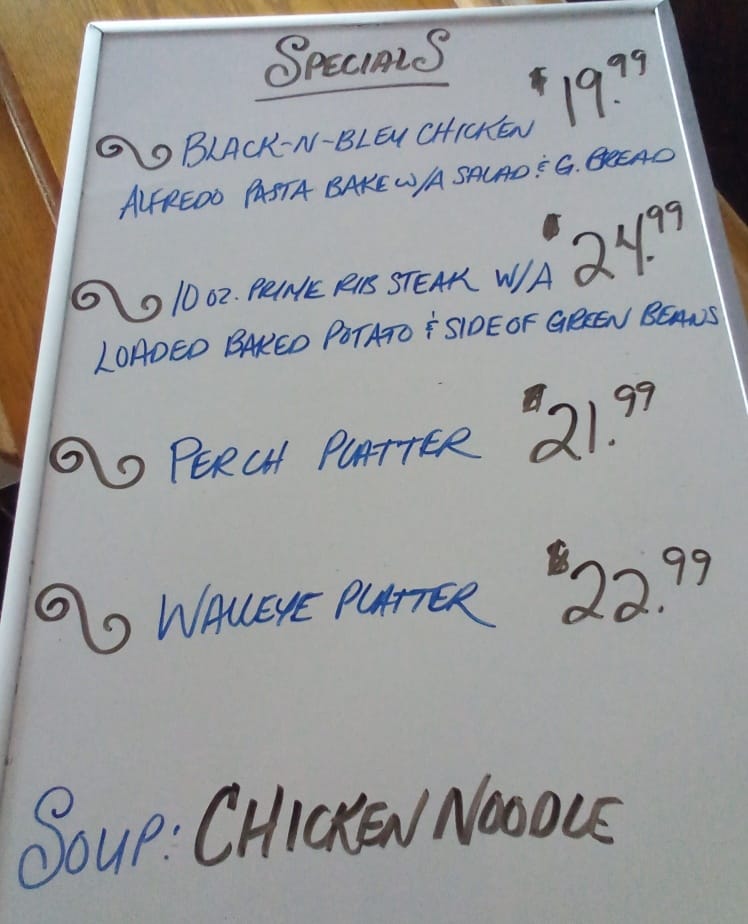 SPECIALS
BLACK-N-BLEU CHICKEN $19.99
ALFREDO PASTA BAKE W/A SALAD & G. BREAD
10 OZ. PRIME RIB STEAK W/A $24.99
LOADED BAKED POTATO & SIDE OF GREEN BEANS
PERCH PLATTER $21.99
WALLEYE PLATTER $22.99
SOUP: CHICKEN NOODLE